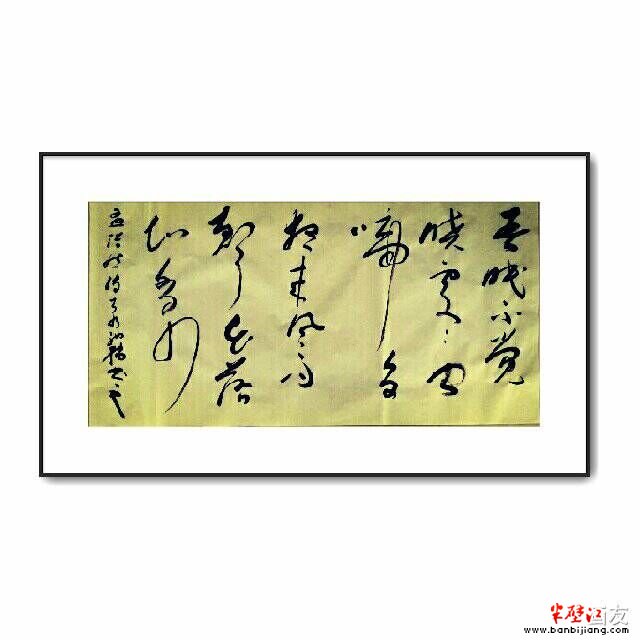 春眠不觉
晓处处闻
啼鸟
夜来风雨
声花落
知多少
孟浩然诗
半壁江画友
www.banbijiang.com